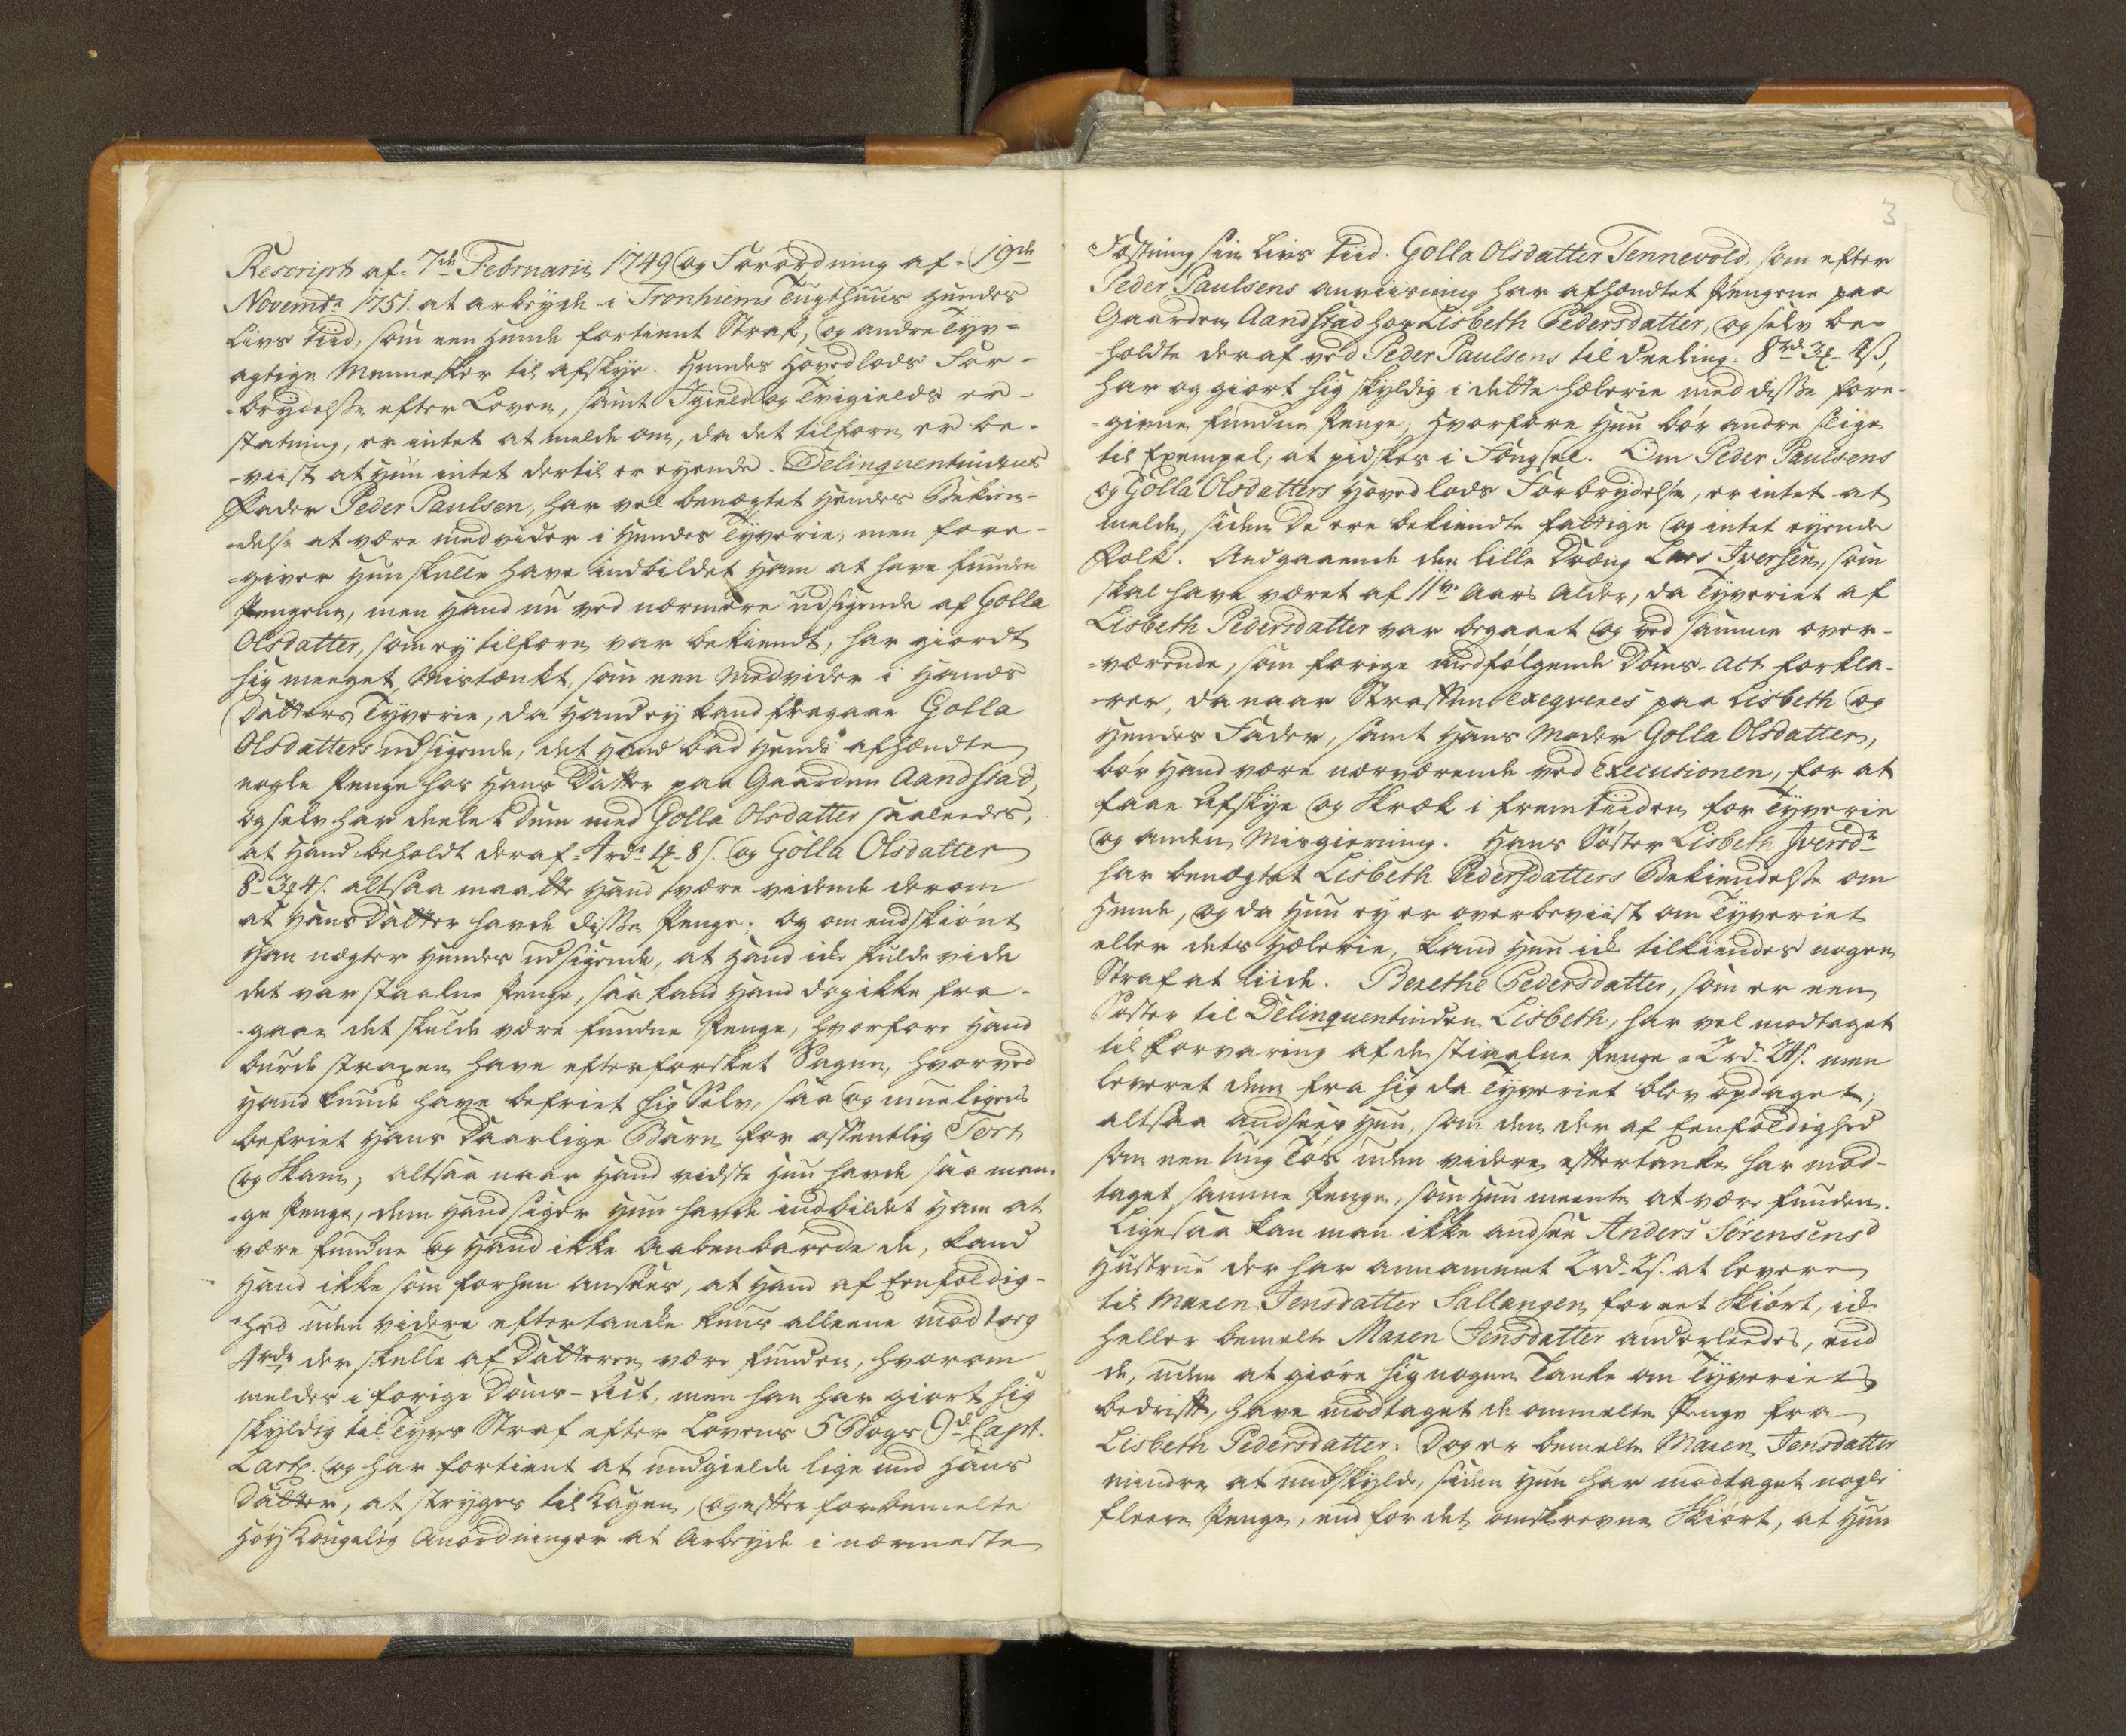 Rescript af 7de Februarii 1749 og Forordning af 19de
Novembr 1751. at arbeyde i Tronhiems Tugthuus hendes
Livs tiid, som een hende fortient Straf, og andre Tyv-
agtige Mennesker til afskye. Hendes Hovedlods For-
-brydelse efter Loven, samt Igield og Tvigields er-
statning, er intet at melde om, da det tilforn er be-
-viist at hun intet dertil er eyende. Delinquentindens
Fader Peder Paulsen, har vel benægtet hendes Bekien-
-delse at være medvider i hendes Tyverie, men fore-
-giver hun skulle have indbildet ham at have funden
Pengene, men hand nu ved nærmere udsigende af Golla
Olsdatter, som ey tilforn var bekiendt, har giordt
sig meeget Mistænkt, som een Medvider i hands
Datters Tyverie, da hand ey kand fragaae Golla
Olsdatters udsigende, det hand bad hende afhændte
nogle Penge hos hans Datter paa Gaarden Aandstad,
og selv har deelet dem med Golla Olsdatter saaleedes,
at hand beholdt deraf 4 rdr 4 - 8 s. og Golla Olsdatter
8 d 3 4 s. altsaa maatte hand være vidende derom
at hans Datter havde disse Penge; og omendskiønt
han nægter hendes udsigende, at hand icke skulde vide
det var staalne Penge, saa kand hand dog ikke fra-
-gaae det skulde være fundne Penge, hvorfore hand
burde straxen have efterforsket Sagen, hvorved
hand kunde have befriet sig Selv, saa og mueligens
befriet hans Daarlige Barn for offentlig Tort
og Skam, altsaa naar hand vidste hun havde saa man-
-ge Penge, dem hand siger hun havde indbildet ham at
være fundne og hand ikke Aabenbarede de, kand
hand ikke som forhen ansees, at hand af Eenfoldig-
-hed uden videre eftertanke kuns alleene modtog
4 rdr der skulle af Datteren være funden, hvorom
meldes i forige Doms-Act, men han har giort sig
skyldig til Tyvs Straf efter Lovens 5 Bogs 9de Capt.
Lartz. og har fortient at undgielde lige med hans
Datter, at stryges til Kagen, og efter forbemelte
Høy Kongelig Anordninger at Arbeyde i nærmeste
3
Fæstning sin Livs tiid. Golla Olsdatter Tennevold, som efter
Peder Paulsens anviisning har afhændtet Pengene paa
Gaarden Aandstad hos Lisbeth Pedersdatter, og selv be-
-holdte deraf ved Peder Paulsens til deeling: 8 rd 3 - 4 ß,
har og giort sig skyldig i dette hælerie med disse fore-
-givne fundne Penge, hvorfore hun bør andre slige
til Exempel, at pidskes i Fængsel. Om Peder Paulsens
og Golla Olsdatters hovedlods Forbrydelse, er intet at
melde, siden de ere bekiendte fattige og intet eyende
Folk. Andgaaende den lille Dræng Lars Iversen, som
skal have været af 11ve Aars Alder, da Tyveriet af
Lisbeth Pedersdatter var begaaet og ved samme over-
-værende, som forige medfølgende Doms-Act forkla-
-rer, da naar Straffen exeqveres paa Lisbeth og
hendes Fader, samt hans Moder Golla Olsdatter,
bør hand være nærværende ved Executionen, for at
faae Afskye og Skræk i fremtiiden for Tyverie
og anden Misgierning. Hans Søster Lisbeth Iversdr
har benægtet Lisbeth Pedersdatters Bekiendelse om
hende, og da hun ey er overbeviist om Tyveriet
eller dets hælerie, kand hun icke tilkiendes nogen
Straf at liide. Berethe Pedersdatter, som er een
Søster til Delinquentinden Lisbeth, har vel modtaget
til forvaring af de stiaalne Penge 2 rd. 24 s. men
leveret dem fra sig da Tyveriet blev opdaget;
altsaa andsees hun, som den der af Eenfoldighed
som een ung Tøs uden videre eftertanke har mod-
taget samme Penge, som hun meente at være funden.
Ligesaa kan man ikke andsee Anders Sørensens
hustrue der har annammet 2 rd. 2 s. at levere
til Maren Jensdatter Sallangen for eet Skiørt, icke
heller bemelte Maren Jensdatter anderleedes, end
de, uden at giøre sig nogen Tanke om Tyveriets
bedrift, have modtaget de ommelte Penge fra
Lisbeth Pedersdatter: Dog er bemelte Maren Jensdatter
mindre at undskylde, siden hun har modtaget nogle
fleere Penge, end for det omskrevne Skiørt, at hun